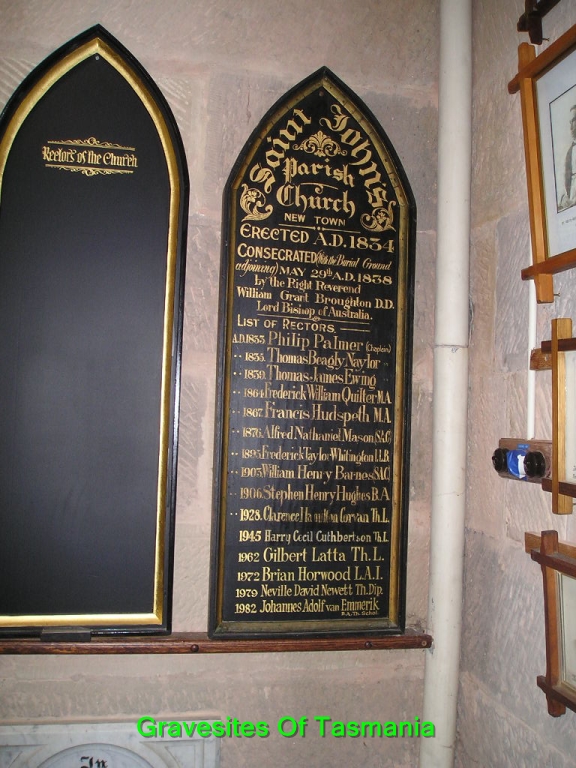 Rectors of the Church
Saint John's
Parish
Church
NEW TOWN
ERECTED A.D. 1834
CONSECRATED (with the Burial Ground
adjoining) MAY 29th A.D. 1838
by the Right Reverend
William Grant Broughton D.D.
Lord Bishop of Australia.
LIST OF RECTORS.
A.D. 1833. Philip Palmer (Chaplain)
" 1835. Thomas Beagly Naylor "
" 1839. Thomas James Ewing
" 1864 Frederick William Quilter M.A.
" 1867. Francis Hudspeth M.A.
" 1876. Alfred Nathaniel Mason S.A.C.
" 1895 Frederick Taylor Whitington L.L.B
" 1903 William Henry Barnes S.A.C
" 1906 Stephen Henry Hughes B.A
" 1928. Clarence Hamilton Corvan Th.L.
1945 Harry Cecil Cuthbertson Th.L
1962 Gilbert Latta Th.L.
1972 Brian Horwood L.A.I.
1979 Neville David Newett Th.Dip.
1982 Johannes Adolf van Emmerik
B.A. Th. Schol.
In
Gravesites Of Tasmania